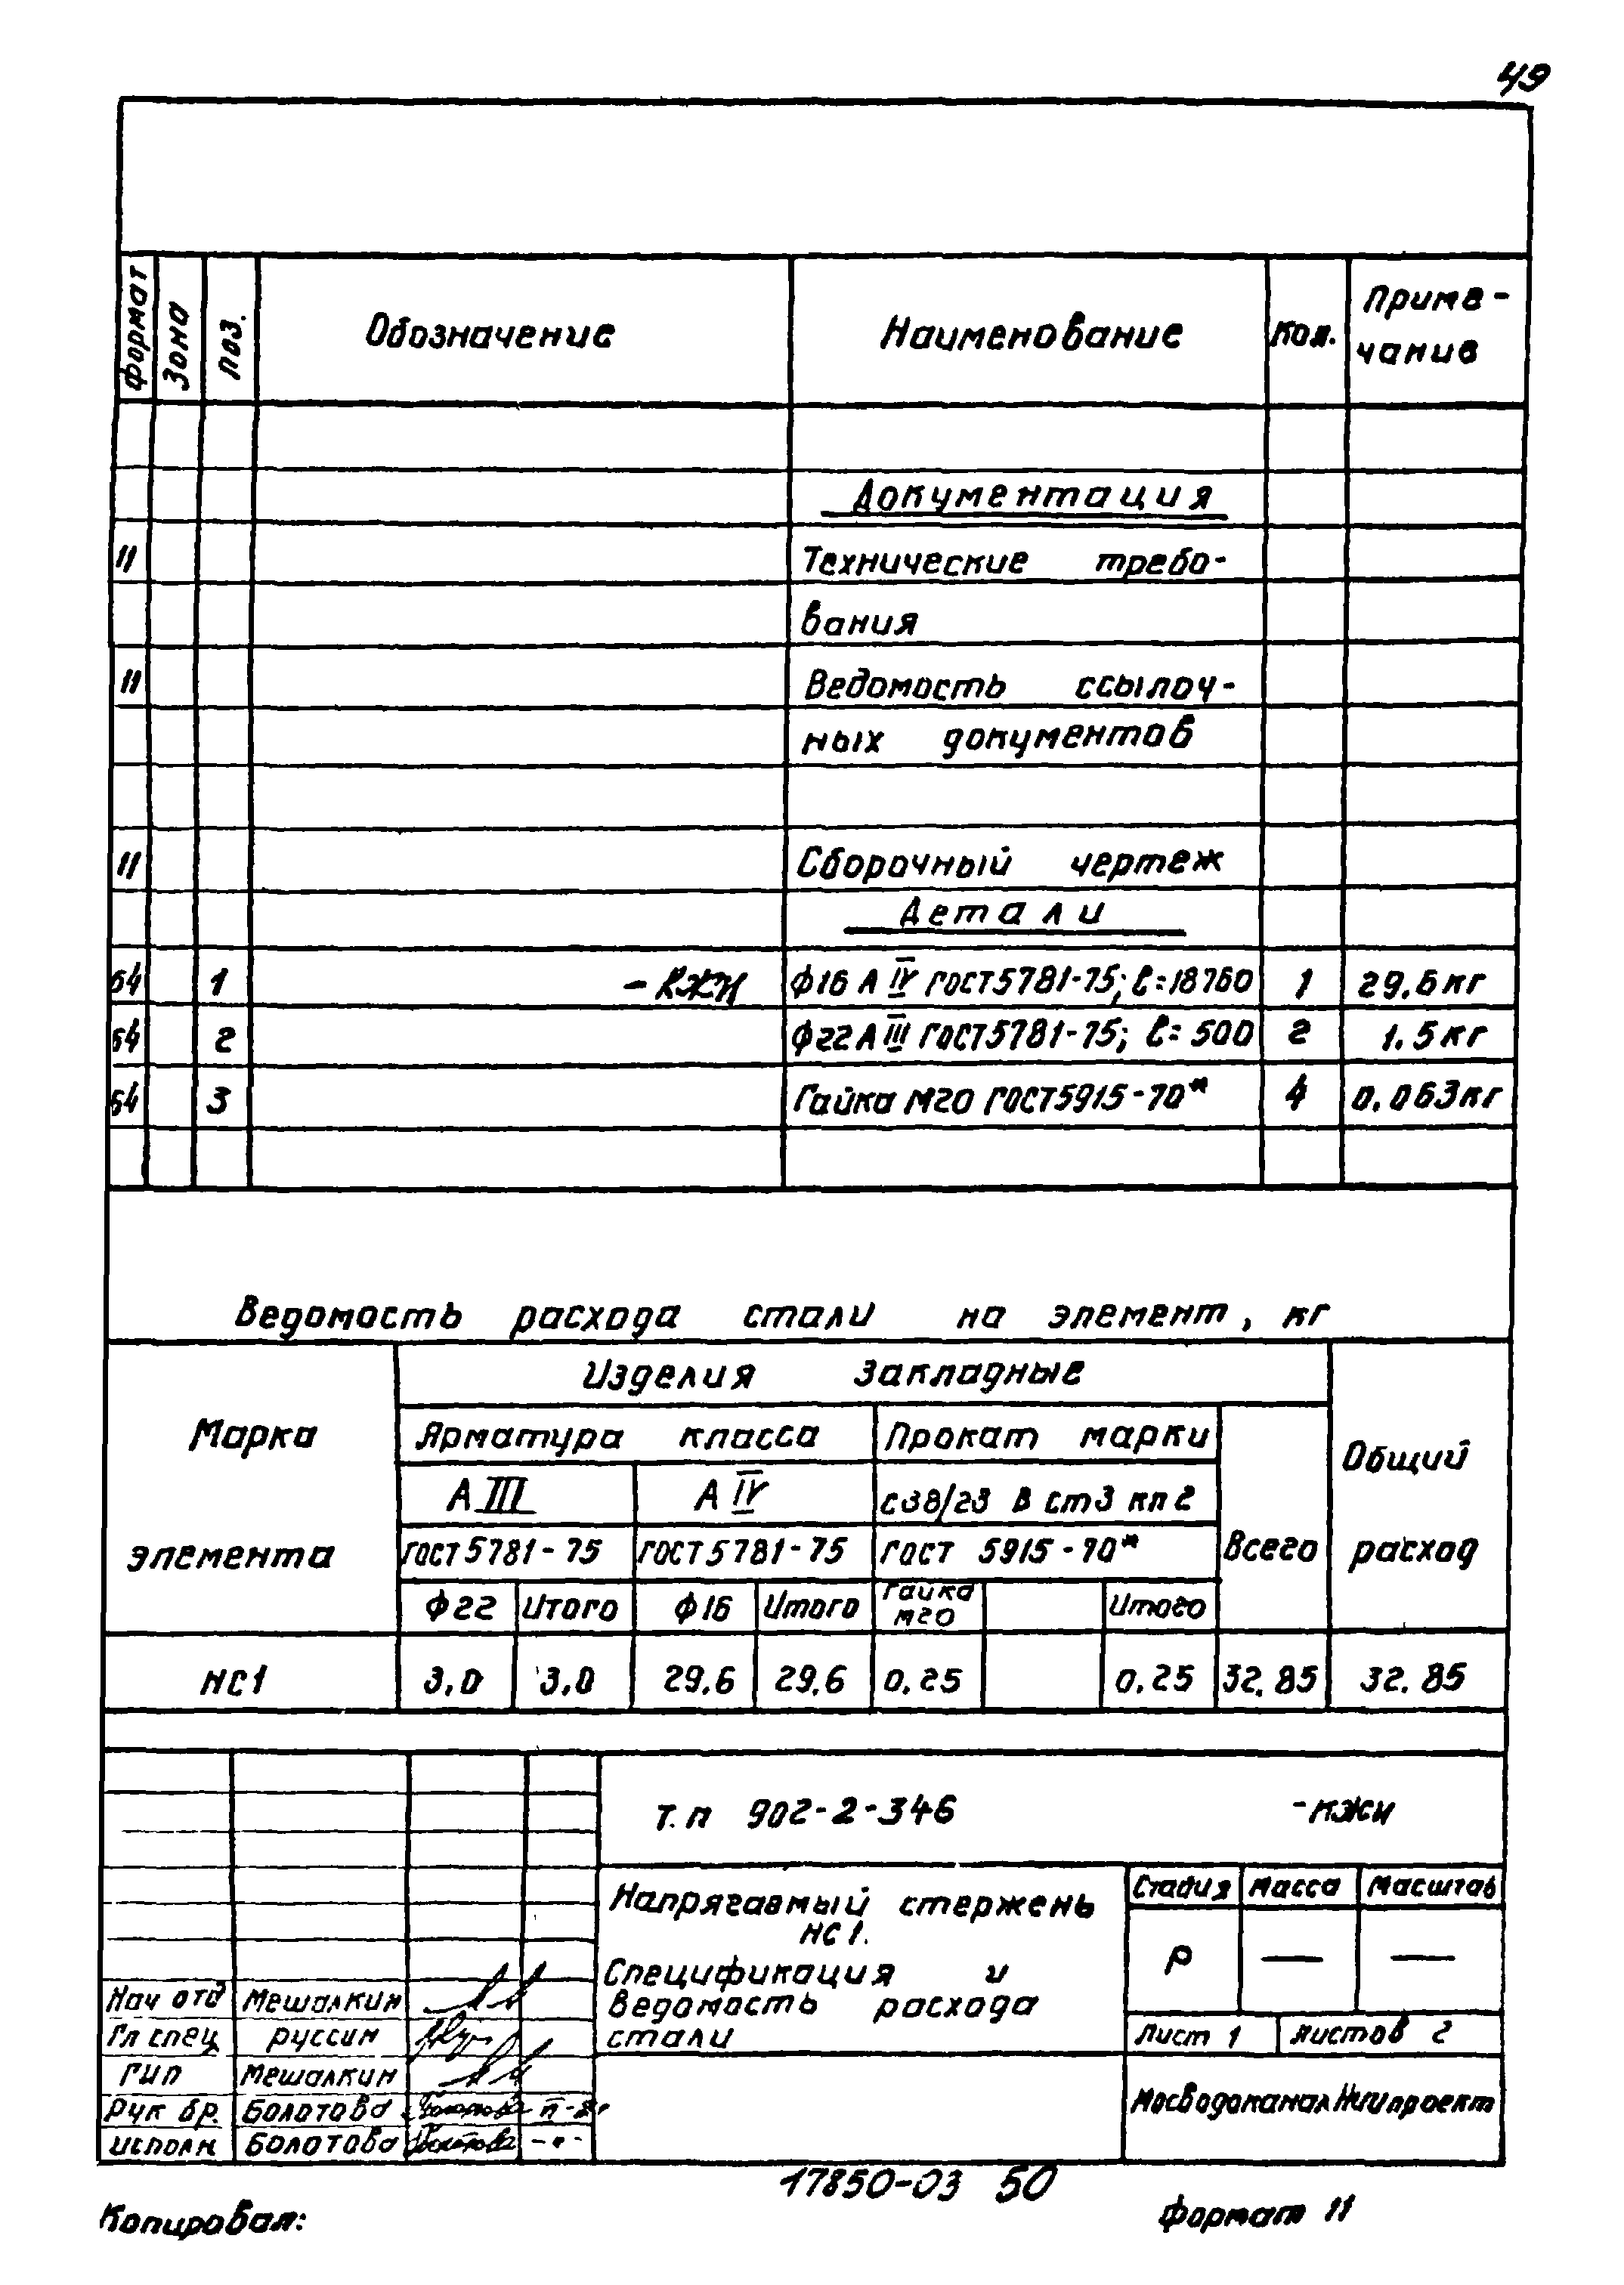 49
Формат Зона Поз. Обозначение Наименование Кол. Приме-
чание
Документация
11 Технические требо-
вания
11 Ведомость ссылоч-
ных документов
11 Сборочный чертеж
Детали
Б4 1 -КЖИ Ф16 А IV ГОСТ 5781-75; ℓ=18760 1 29.6кг
Б4 2 Ф22 А III ГОСТ 5781-75; ℓ=500 2 1.5кг
Б4 3 Гайка М20 ГОСТ 5915-70* 4 0.063кг
Ведомость расхода стали на элемент, кг
Марка элемента
Изделия закладные
Арматура класса Прокат марки
А III А IV с38/23 В ст3 кп2
ГОСТ 5781-75 ГОСТ 5781-75 ГОСТ 5915-70* Всего Общий расход
Ф22 Итого Ф16 Итого Гайка М20 Итого
НС1 3,0 3,0 29.6 29.6 0.25 0.25 32.85 32.85
т.п 902-2-346 -КЖИ
Напрягаемый стержень
НС1.
Спецификация и
ведомость расхода
стали
Стадия Масса Масштаб
Р — —
Лист 1 Листов 2
МосводоканалНИИпроект
Нач отд Мешалкин
Гл спец Руссин
ГИП Мешалкин
Рук бр. Болотова
Исполн Болотова
17850-03 50
Копировал:
Формат 11